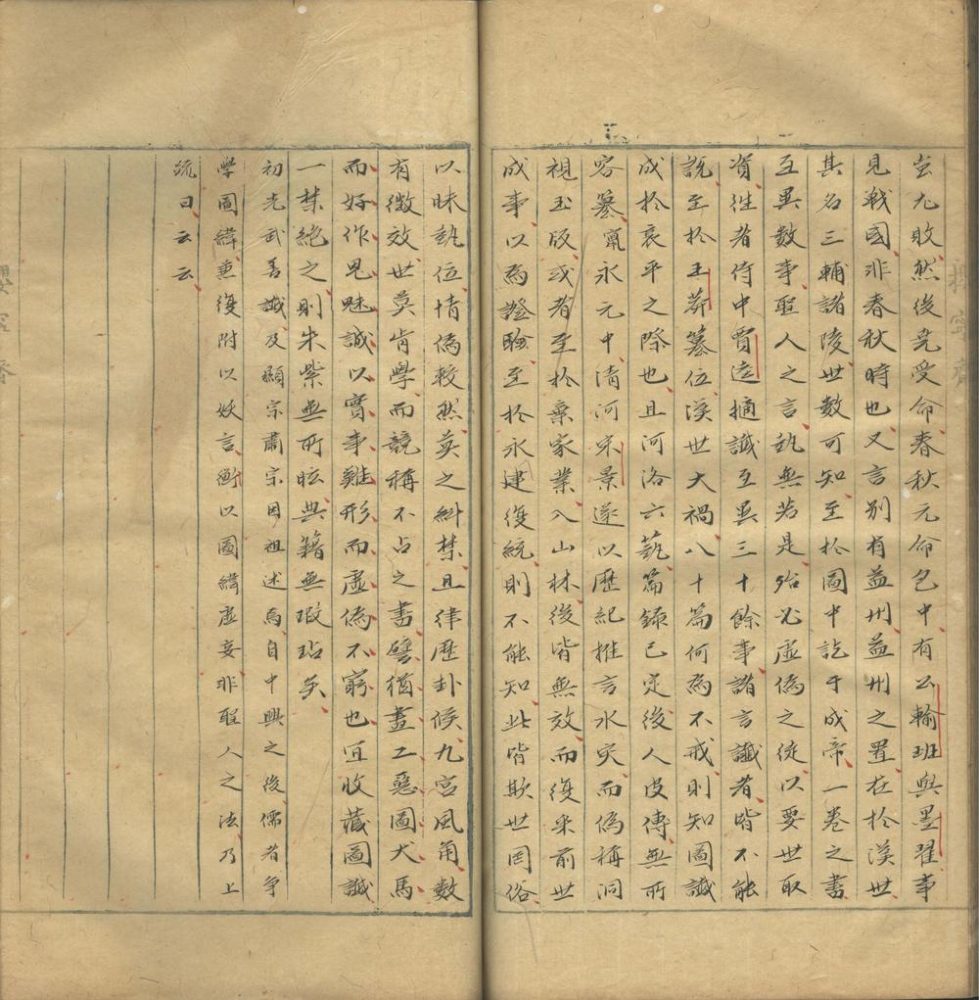 岂尤敗然後堯受命春秋元命包中有公輸班與墨翟事
見戰國非春秋時也又言別有益州益州之置在於漢世
其名三輔諸陵世數可知至於圖中訖于成帝一卷之書
互異數事聖人之言埶無若是殆必虛偽之徒以要世取
資往者侍中賈逵擿讖互異三十餘事諸言讖者皆不能
說至於王莽篡位漢世大禍八十篇何為不戒則知圖讖
成於哀平之際也且河洛六藝篇錄已定後人皮傅無所
容篡竄永元中清河宋景遂以歷紀推言水災而偽稱洞
視玉版或者至於棄家業入山林後皆無效而復采前世
成事以為證驗至於永建復統則不能知此皆欺世罔俗
以昧埶位情偽較然莫之糾禁且律歷卦候九宮風角數
有徵效世莫肯學而競稱不占之書譬猶畫工惡圖犬馬
而好作鬼魅誠以實事難形而虛偽不窮也宜收藏圖讖
一禁絕之則朱紫無所眩典籍無瑕玷矣
初光武善讖及顯宗肅宗因祖述焉自中興之後儒者爭
學圖緯兼復附以妖言衡以圖緯虛妄非聖人之法乃上
疏曰云云